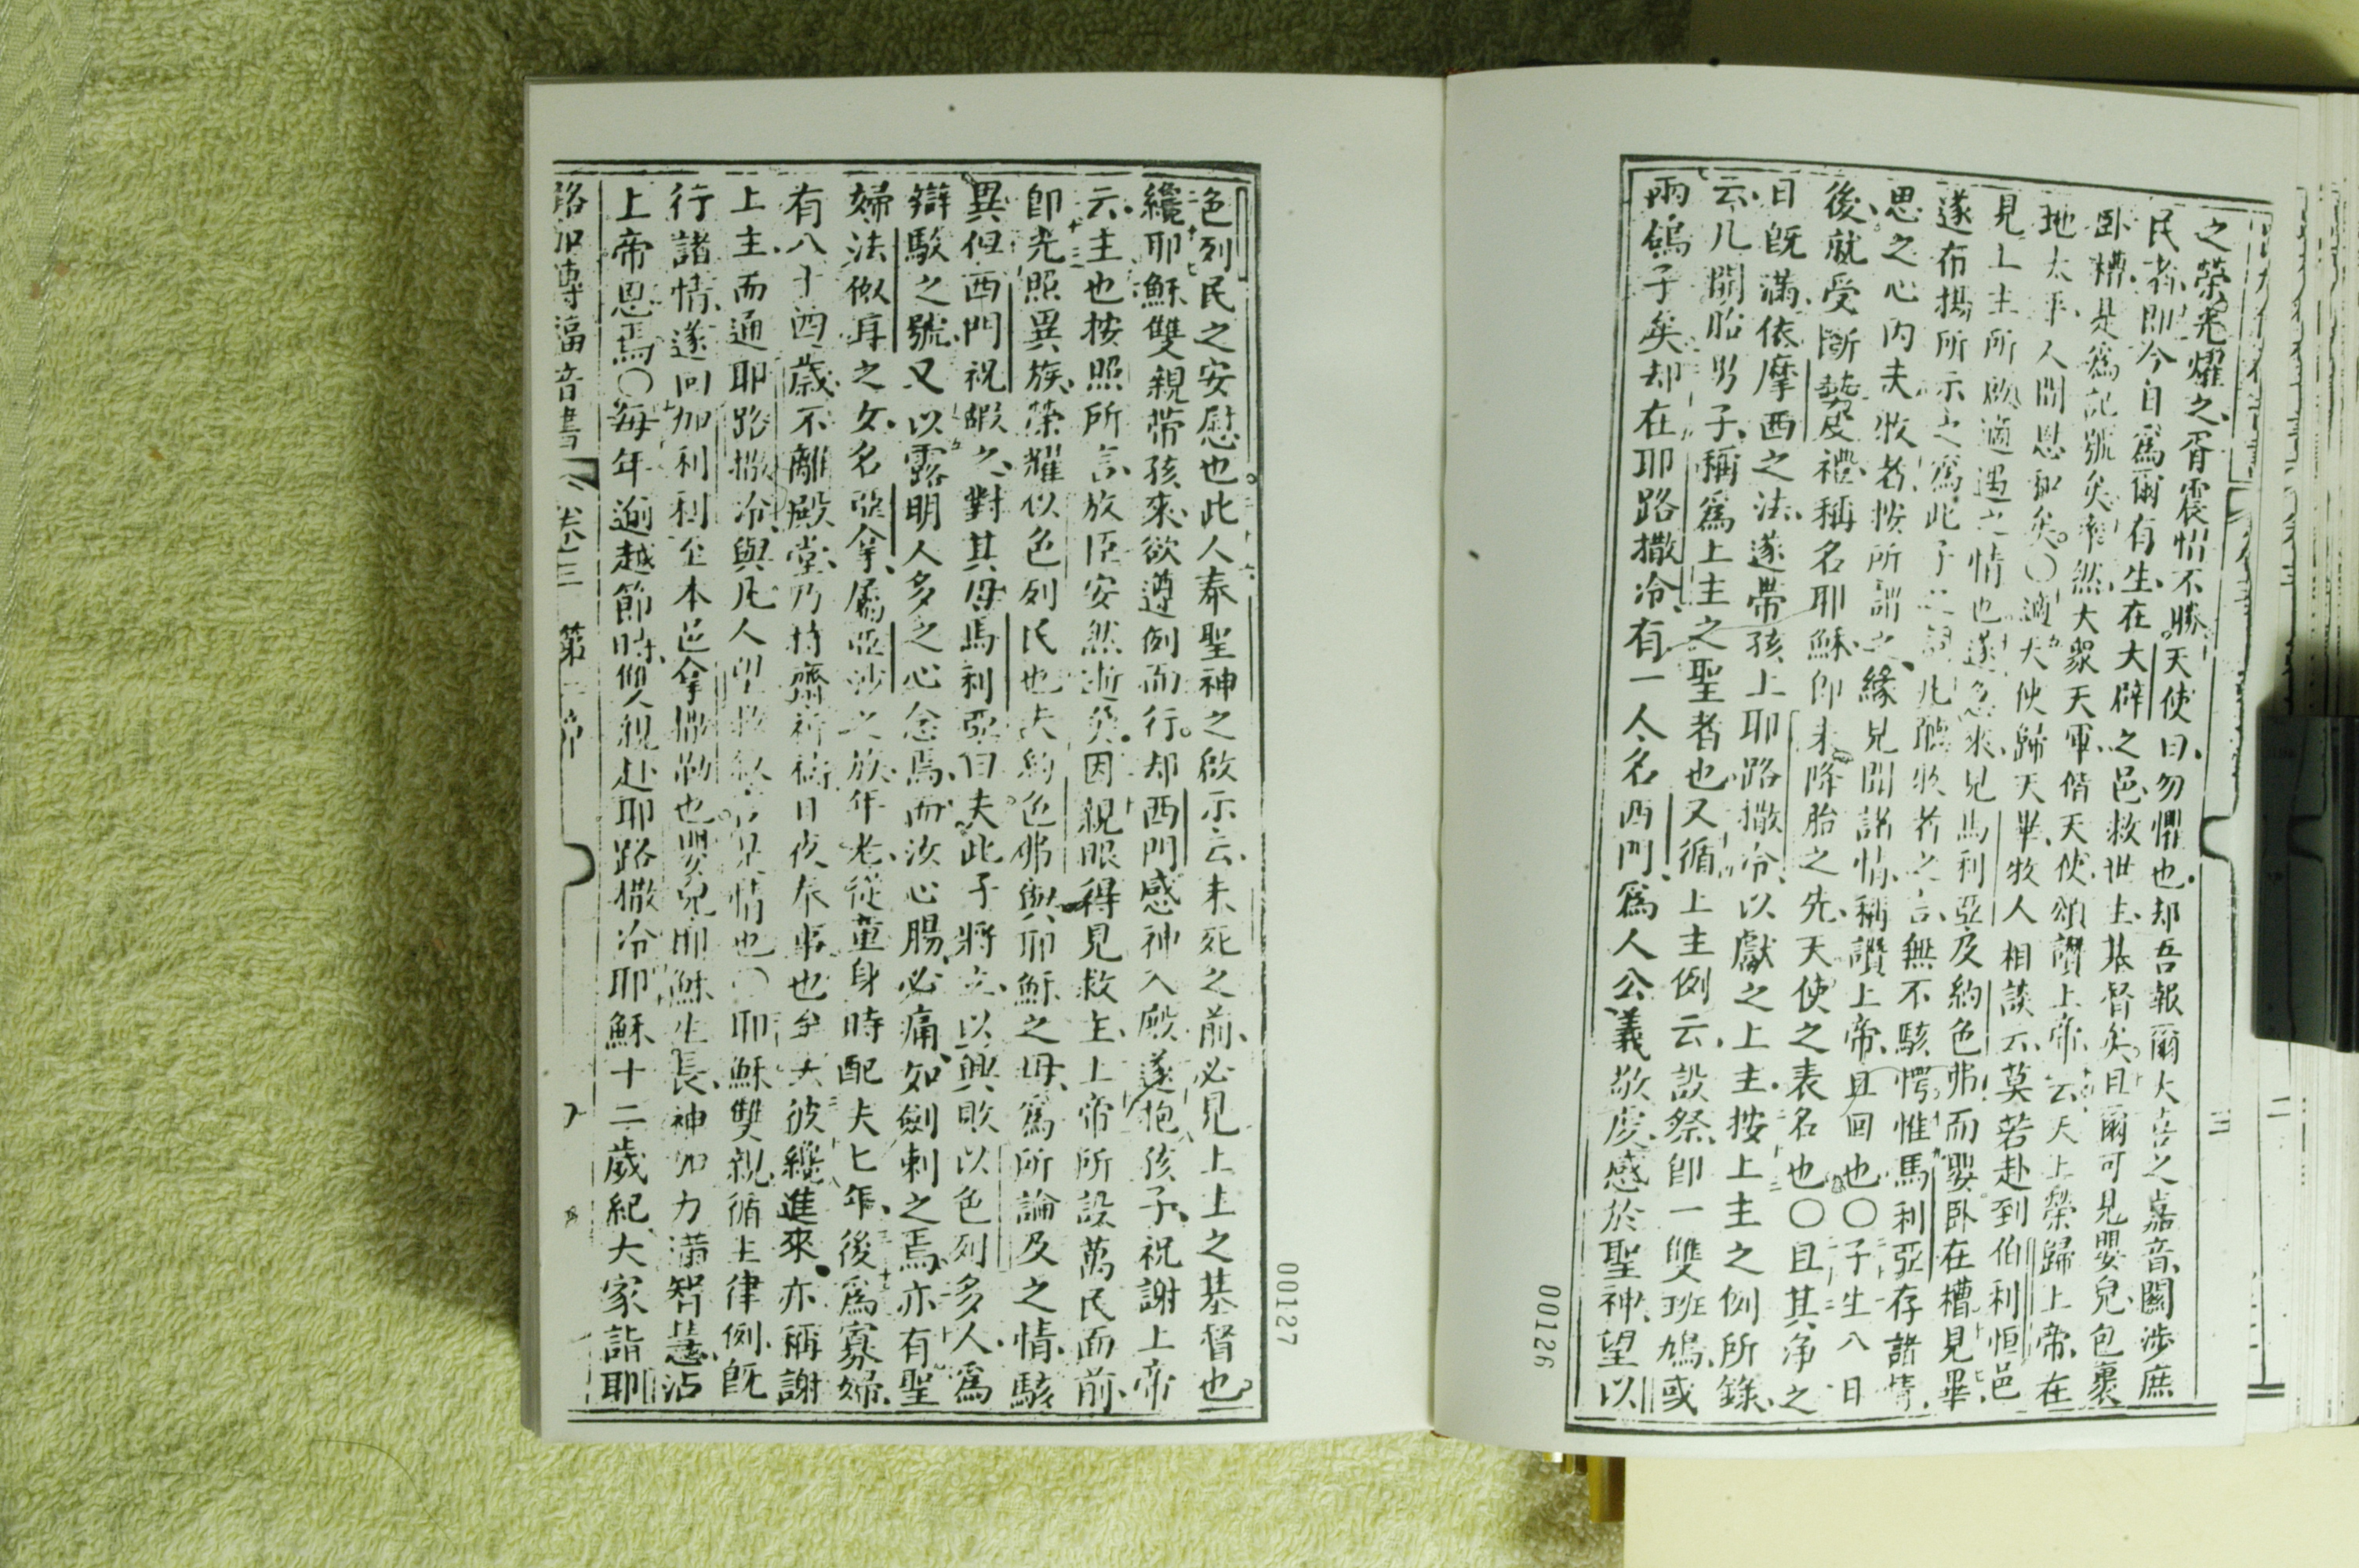 之榮光燿之、胥震慴不勝。天使曰、勿懼也、却吾報爾大喜之嘉音、關涉庶
民者、即今日爲爾有生、在大辟之邑、救世主、基督矣。且爾可見嬰兒、包裹
卧槽、是爲記號矣。率然大衆天軍、偕天使、頌讚上帝、云、天上榮歸上帝、在
地太平、人間恩和矣。〇適天使歸天畢、牧人相談云、莫若赴到伯利恒邑、
見上主所啟適遇之情也、遂急來、見馬利亞及約色弗、而嬰卧在槽、見畢、
遂布揚所示之爲此子之詞、凡聽牧者之言、無不駭愕、惟馬利亞存諸情、
思之心內、夫牧者、按所謂之、緣見聞諸情、稱讚上帝、且回也。〇子生八日
後、就受斷勢皮禮、稱名耶穌、即未降胎之先、天使之表名也。〇且其凈之
日旣滿、依摩西之法、遂帶孩上耶路撒冷、以獻之上主、按上主之例所錄、
云、凡開胎男子、稱爲上主之聖者也、又循上主例云、設祭、即一雙班鳩、或
兩鴿子矣、却在耶路撒冷、有一人、名西門、爲人公義敬虔、感於聖神、望以
00126
三
色列民之安慰也。此人奉聖神之啟示云、未死之前、必見上主之基督也、
纔耶穌雙親帶孩來、欲遵例而行。却西門感神入殿、遂抱孩子、祝謝上帝
云、主也、按照所言、放臣安然逝矣。因親眼得見救主、上帝所設萬民面前、
即光照異族、榮耀以色列民也、夫約色弗與耶穌之母、爲所論及之情、駭
異、但西門祝嘏之、對其母馬利亞曰、夫此子將立、以興敗以色列多人、爲
辯駁之號、又以露明人多之心念焉、而汝心腸、必痛、如劍刺之焉、亦有聖
婦、法倣耳之女、名亞拿、屬亞沙之族、年老、從童身時配夫七年、後爲寡婦、
有八十四歲、不離殿堂、乃持齋祈禱、日夜奉事也、至此彼纔進來、亦稱謝
上主、而通耶路撒冷、與凡人望救、情也〇耶穌雙親、循主律例、旣
行諸情、遂回加利利、至本邑拿撒勒也、嬰兒耶穌生長、神加力、滿智慧、沾
上帝恩焉〇每年逾越節時、雙親赴耶路撒冷、耶穌十二歲紀、大家詣耶
路加傳福音書 卷三 第二節
00127